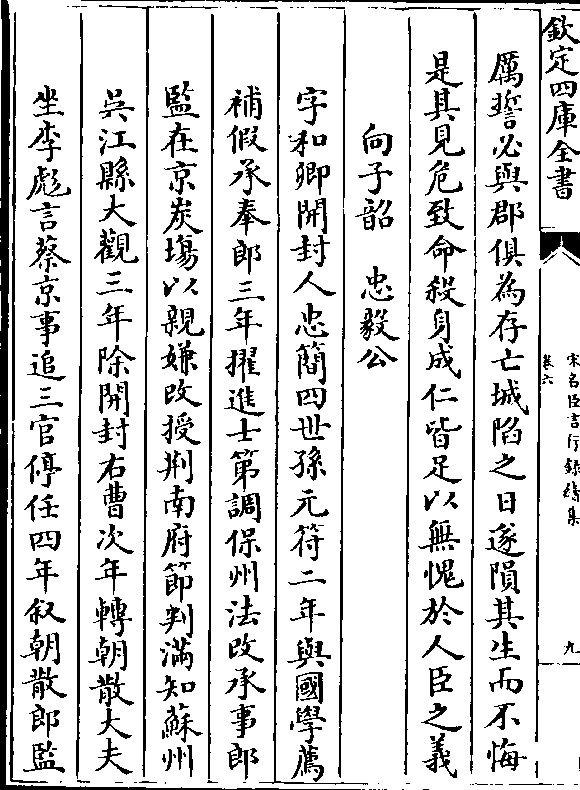 欽定四庫全書
宋名臣言行錄續集
卷六
九
厲誓必與郡俱為存亡城陷之日遂隕其生而不悔
是其見危致命殺身成仁皆足以無愧於人臣之義
向子韶　忠毅公
字和卿開封人忠簡四世孫元符二年與國學薦
補假承奉郎三年擢進士第調保州法改承事郎
監在京炭場以親嫌改授荆南府節判滿知蘇州
吳江縣大觀三年除開封右曹次年轉朝散大夫
坐李彪言蔡京事追三官停任四年叙朝散郎監